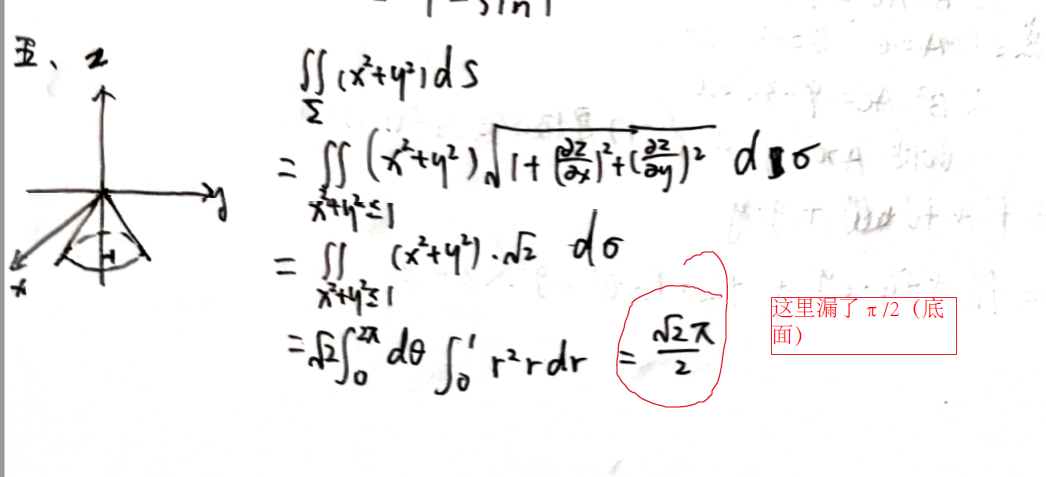 = 1 - sin 1
五、 z
y
x
-1
∬_Σ (x²+y²) dS
= ∬_{x²+y²≤1} (x²+y²) √(1+(∂z/∂x)²+(∂z/∂y)²) dσ
= ∬_{x²+y²≤1} (x²+y²)·√2 dσ
= √2 ∫₀^{2π} dθ ∫₀^1 r² r dr = √2π/2
这里漏了 π/2（底
面）